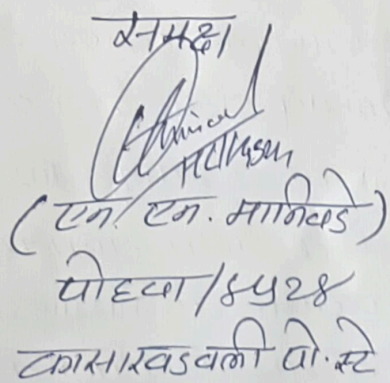 समक्ष
(एन. एन. मानिवडे)
पोहवा/४५२४
कासारवडवली पो. स्टे